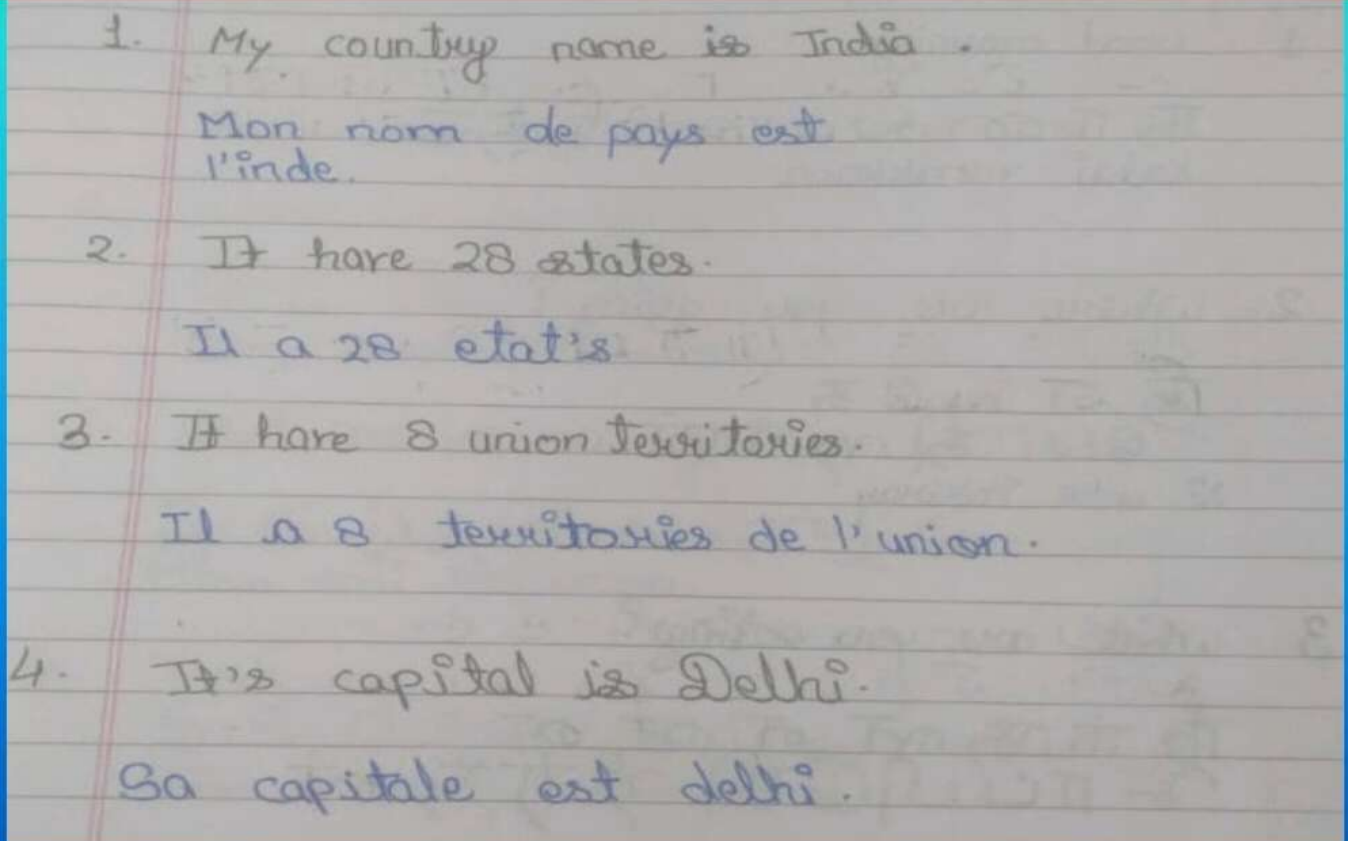 1. My country name is India.
Mon nom de pays est
l'inde.
2. It have 28 states.
Il a 28 etat's
3. It have 8 union territories.
Il a 8 territories de l'union.
4. It's capital is Delhi.
Sa capitale est delhi.